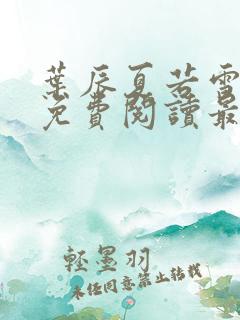 葉辰夏若雪
免費閱讀最
輕墨羽
未經同意禁止轉載